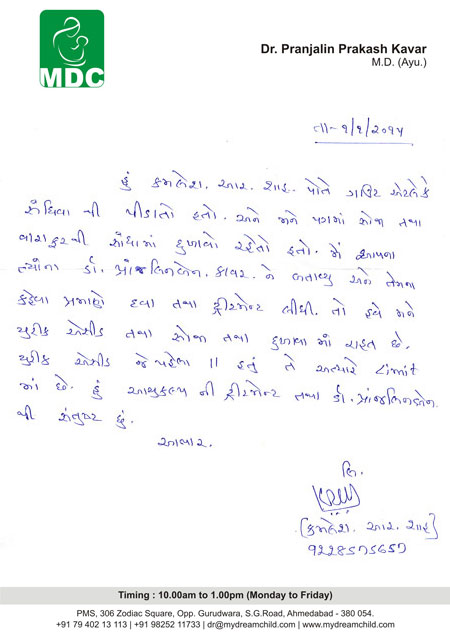 MDC
Dr. Pranjalin Prakash Kavar
M.D. (Ayu.)
તા-૧/૧/૨૦૧૫
હું કમલેશ. આર. શાહ. પોતે ગાઉટ એટલેકે
સંધિવા થી પીડાતો હતો. અને મને પગમાં સોજા તથા
સાંધામાં દુખાવો રહેતો હતો. મેં આપના
ત્યાંના ડૉ. પ્રાંજલિનબેન. કાવર. ને બતાવ્યુ અને તેમના
કહેવા પ્રમાણે દવા તથા ટ્રીટમેન્ટ લીધી. તો હવે મને
યુરીક એસીડ તથા સોજા તથા દુખાવા માં રાહત છે.
યુરીક એસીડ જે પહેલા 11 હતું તે અત્યારે Limit
માં છે. હું આયુકલ્પ ની ટ્રીટમેન્ટ તથા ડૉ. પ્રાંજલિનબેન
થી સંતુષ્ટ છું.
આભાર.
લિ.
[કમલેશ. આર. શાહ]
9228575657
Timing : 10.00am to 1.00pm (Monday to Friday)
PMS, 306 Zodiac Square, Opp. Gurudwara, S.G.Road, Ahmedabad - 380 054.
+91 79 402 13 113 | +91 98252 11733 | dr@mydreamchild.com | www.mydreamchild.com